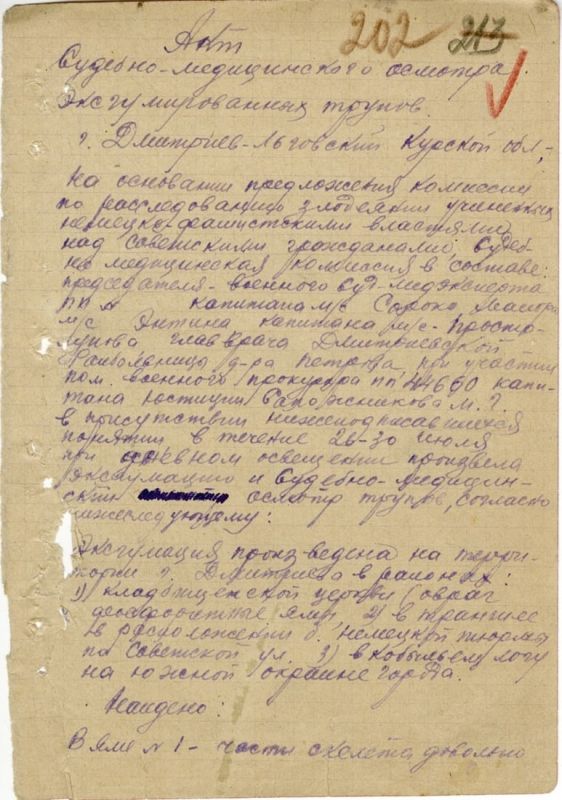 202 213
Акт
Судебно-медицинского осмотра
Эксгумированных трупов.
г. Дмитриев-Льговский Курской обл.,
На основании предложения комиссии
по расследованию злодеяний учиненных
немецко-фашистскими властями
над советскими гражданами, судеб-
но медицинская комиссия в составе:
председателя - военного суд-медэксперта
капитана м/с Сороко, майора
м/с Энтина капитана м/с
главврача Дмитриевской
Райбольницы д-ра Петрова, при участии
пом. военного прокурора пп 44660 капи-
тана юстиции Сапожникова М. Г.
в присутствии нижеподписавшихся
понятых в течение 28-30 июля
при дневном освещении произвела
эксгумацию и судебно-медицин-
ский осмотр трупов, согласно
нижеследующему:
Эксгумация произведена на терри-
тории г. Дмитриева в районах:
1) кладбищенской церкви (овраг
ямы 2) в траншее
в расположении б. немецкой тюрьмы
по Советской ул. 3) в кобыльем логу
на южной окраине города.
Найдено:
В яме №1 - части скелета довольно